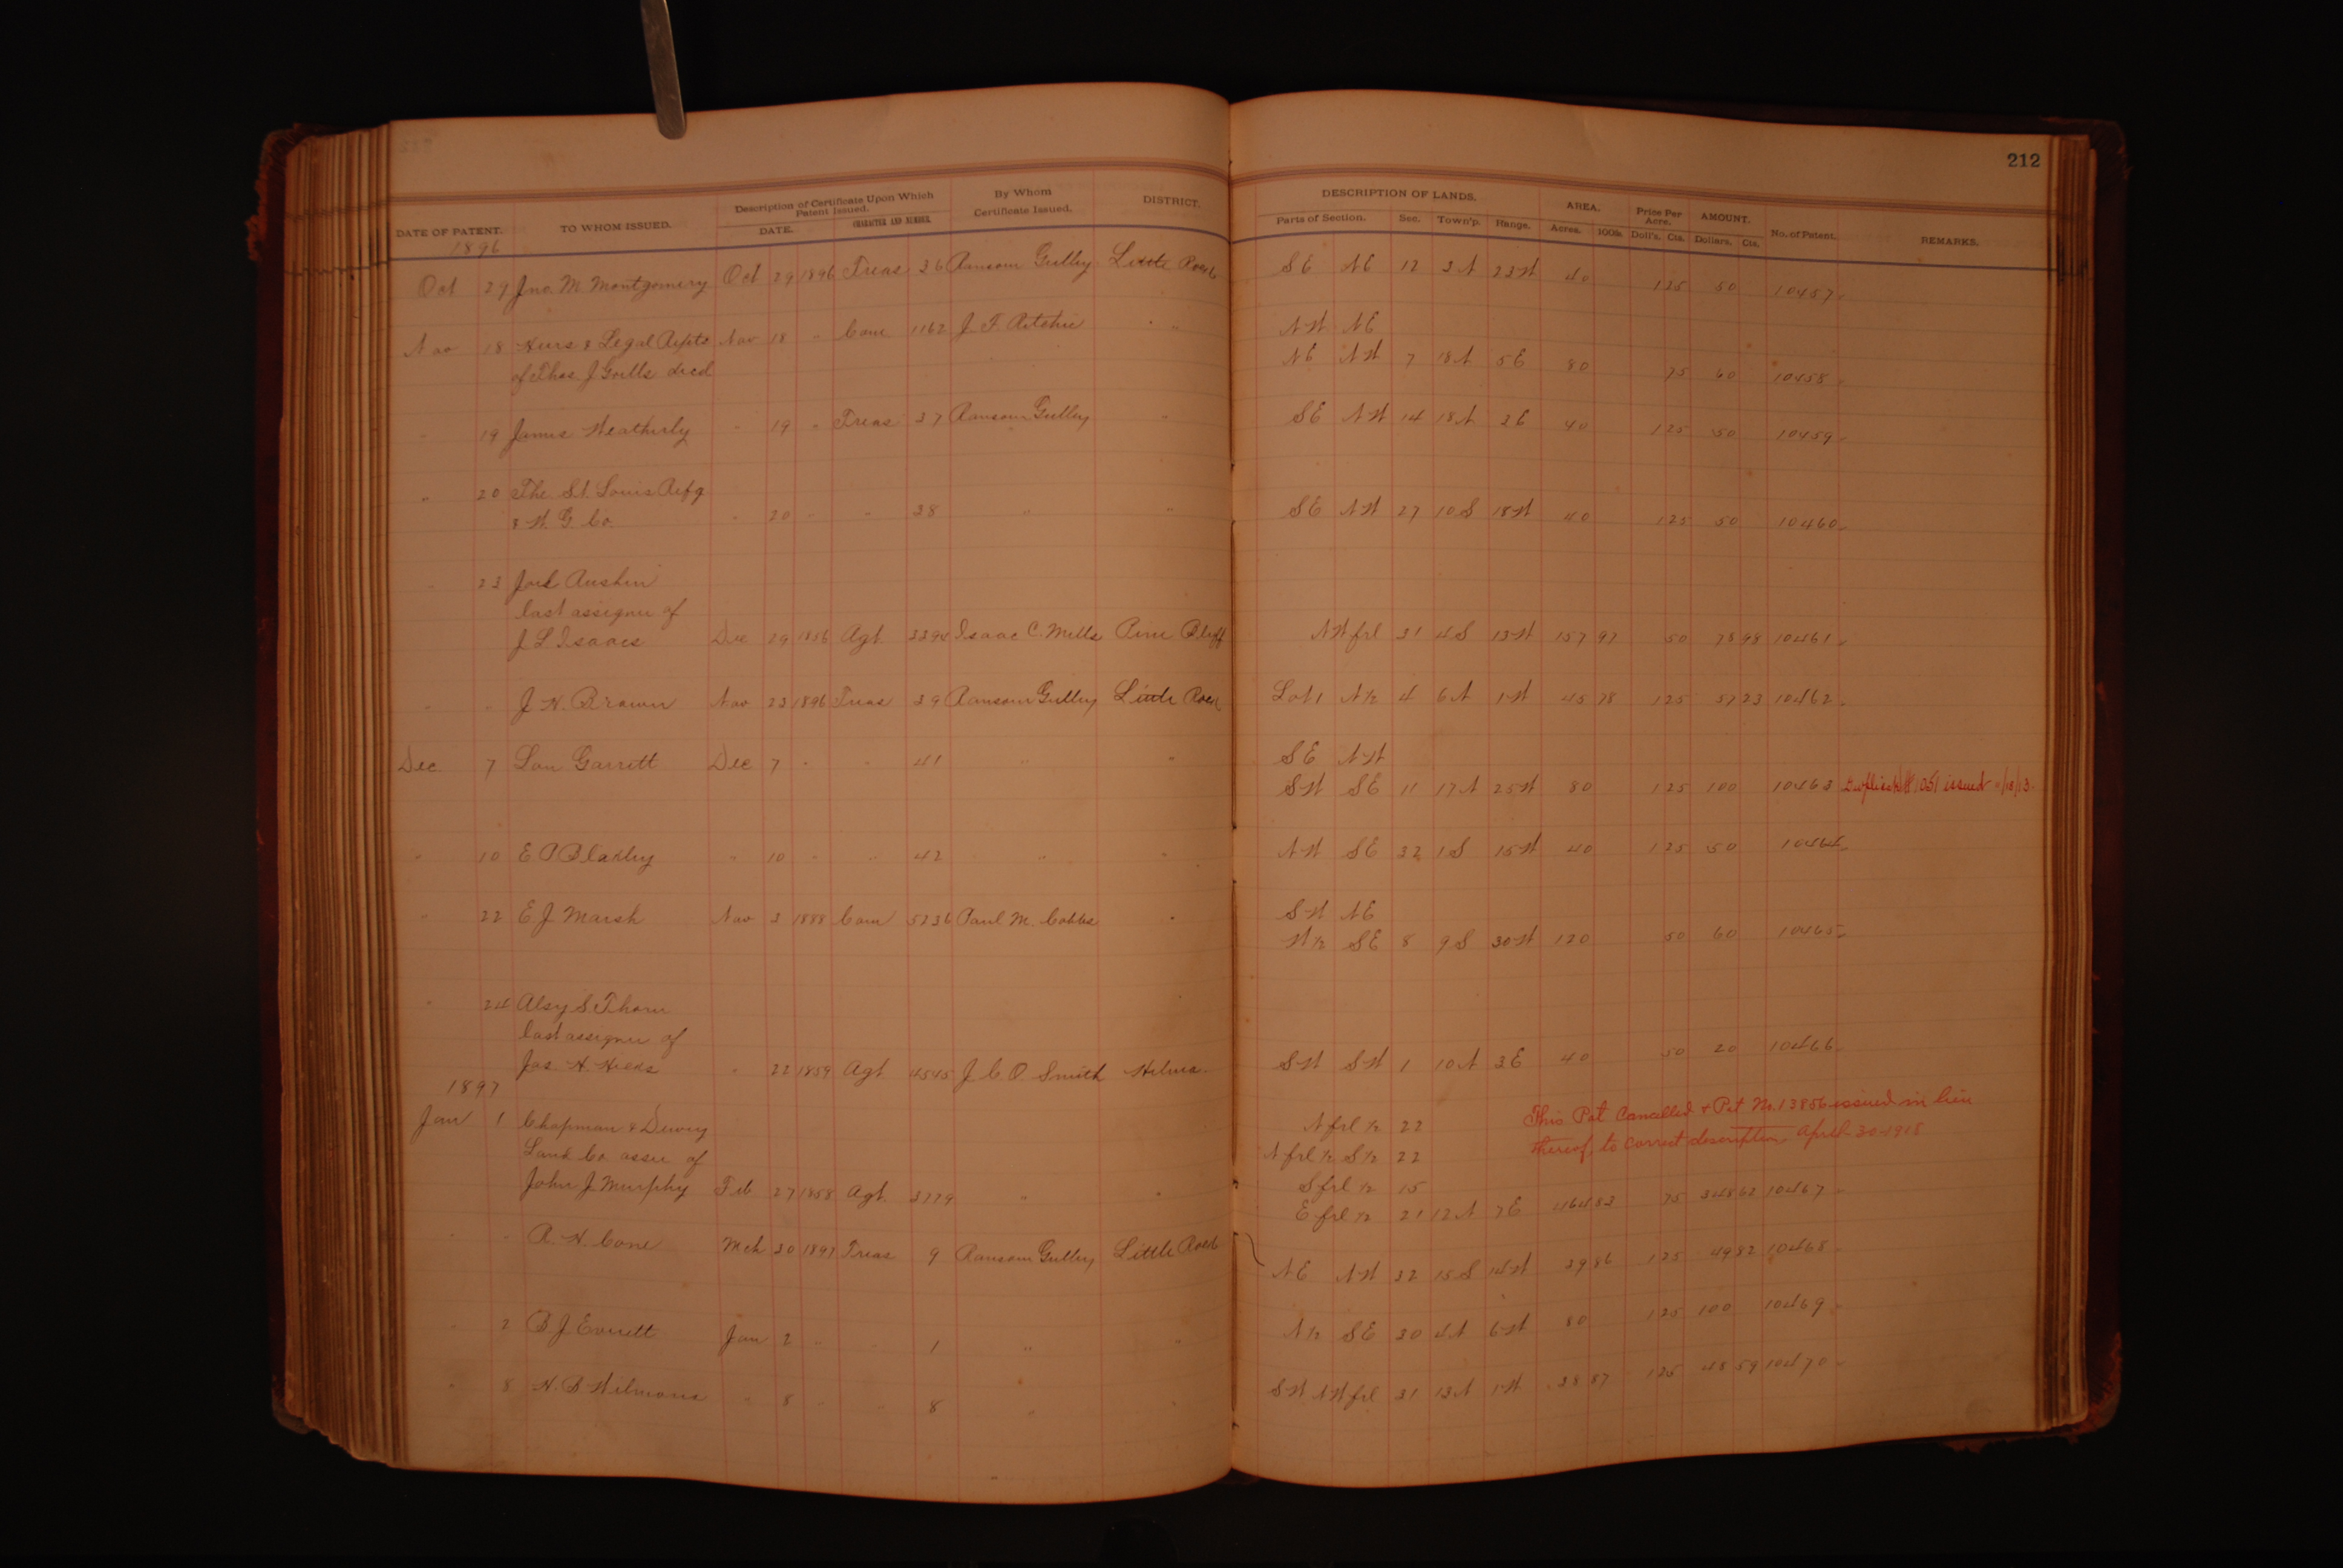 212
DATE OF PATENT. TO WHOM ISSUED. Description of Certificate Upon Which Patent Issued. DATE. CHARACTER AND NUMBER. By Whom Certificate Issued. DISTRICT. DESCRIPTION OF LANDS. Parts of Section. Sec. Town'p. Range. AREA. Acres. 100s. Price Per Acre. Doll's. Cts. AMOUNT. Dollars. Cts. No. of Patent. REMARKS.
1896
Oct 29 Jno. M Montgomery Oct 29 1896 Treas 36 Ransom Gulley Little Rock SE NE 12 3N 23W 40 1 25 50 10457
Nov 18 Heirs & Legal Repts Nov 18 " Com 1162 J. F. Ritchie " " NW NE
of Thos. J decd NE NW 7 18N 5E 80 75 60 10458
" 19 James Weatherly " 19 " Treas 37 Ransom Gulley " SE NW 14 18N 3E 40 1 25 50 10459
" 20 The St. Louis Refg
& W. G. Co. " 20 " " 38 " " SE NW 27 10S 18W 40 1 25 50 10460
" 23 Joel Austin
last assignee of
J L Isaacs Dec 29 1856 Agt 3394 Isaac C. Mills Pine Bluff NW frl 31 4S 13W 157 97 50 78 98 10461
" " J. H. Brown Nov 23 1896 Treas 39 Ransom Gulley Little Rock Lot 1 N½ 4 6N 1W 45 78 1 25 57 23 10462
Dec 7 Lou Garrett Dec 7 " " 41 " " SE NW
SW SE 11 17N 25W 80 1 25 100 10463 Duplicate # 1051 issued /18/13
" 10 E P Blakley " 10 " " 42 " " NW SE 32 1S 15W 40 1 25 50 10464
" 22 E J Marsh Nov 3 1888 Com 5236 Paul M. Cobbs " SW NE
W½ SE 8 9S 30W 120 50 60 10465
" 24 Alsy S. Thorn
last assignee of
Jas. H. Hicks " 22 1859 Agt 4545 J. C. O. Smith Helena SW SW 1 10N 3E 40 50 20 10466
1897
Jan 1 Chapman & Dewey N frl ½ 22 This Pat Cancelled & Pat No. 13856 issued in lieu
Land Co assee of N frl ½ S½ 22 thereof, to correct description, April-30-1918
John J Murphy Feb 27 1858 Agt 3779 " " S frl ½ 15
E frl ½ 21 12N 7E 464 83 75 348 62 10467
" " R. H. Cone Mch 30 1897 Treas 9 Ransom Gulley Little Rock NE NW 32 15S 14W 39 86 1 25 49 82 10468
" 2 B. J Everett Jan 2 " " 1 " " N½ SE 30 4N 6W 80 1 25 100 10469
" 8 H. B Wilmans " 8 " " 8 " " SW NW frl 31 13N 1W 38 87 1 25 48 59 10470